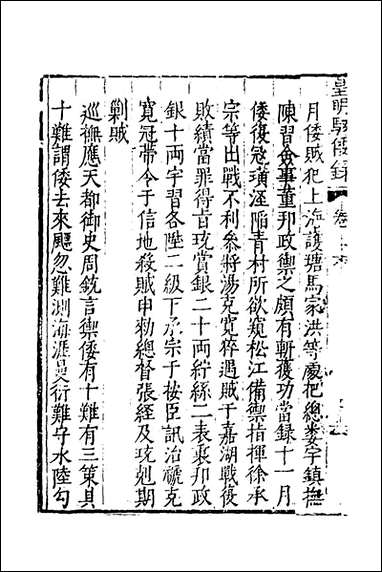 皇明馭倭録 卷之六
月倭賊犯上海護塘馬家洪等處把總婁宇鎮撫
陳習僉事董邦政禦之頗有斬獲功當録十一月
倭復冦璜涇陷青村所欲窺松江備禦指揮徐承
宗等出戰不利叅將湯克寛猝遇賊于嘉湖戰復
敗績當罪得㫖玧賞銀二十兩紵絲二表裏邦政
銀十兩宇習各陞二級下承宗于按臣訊治褫克
寛冠帶令于信地殺賊申勑總督張經及玧剋期
剿賊
巡撫應天都御史周玧言禦倭有十難有三策其
十難謂倭去來飈忽難測海涯曼衍難守水陸勾